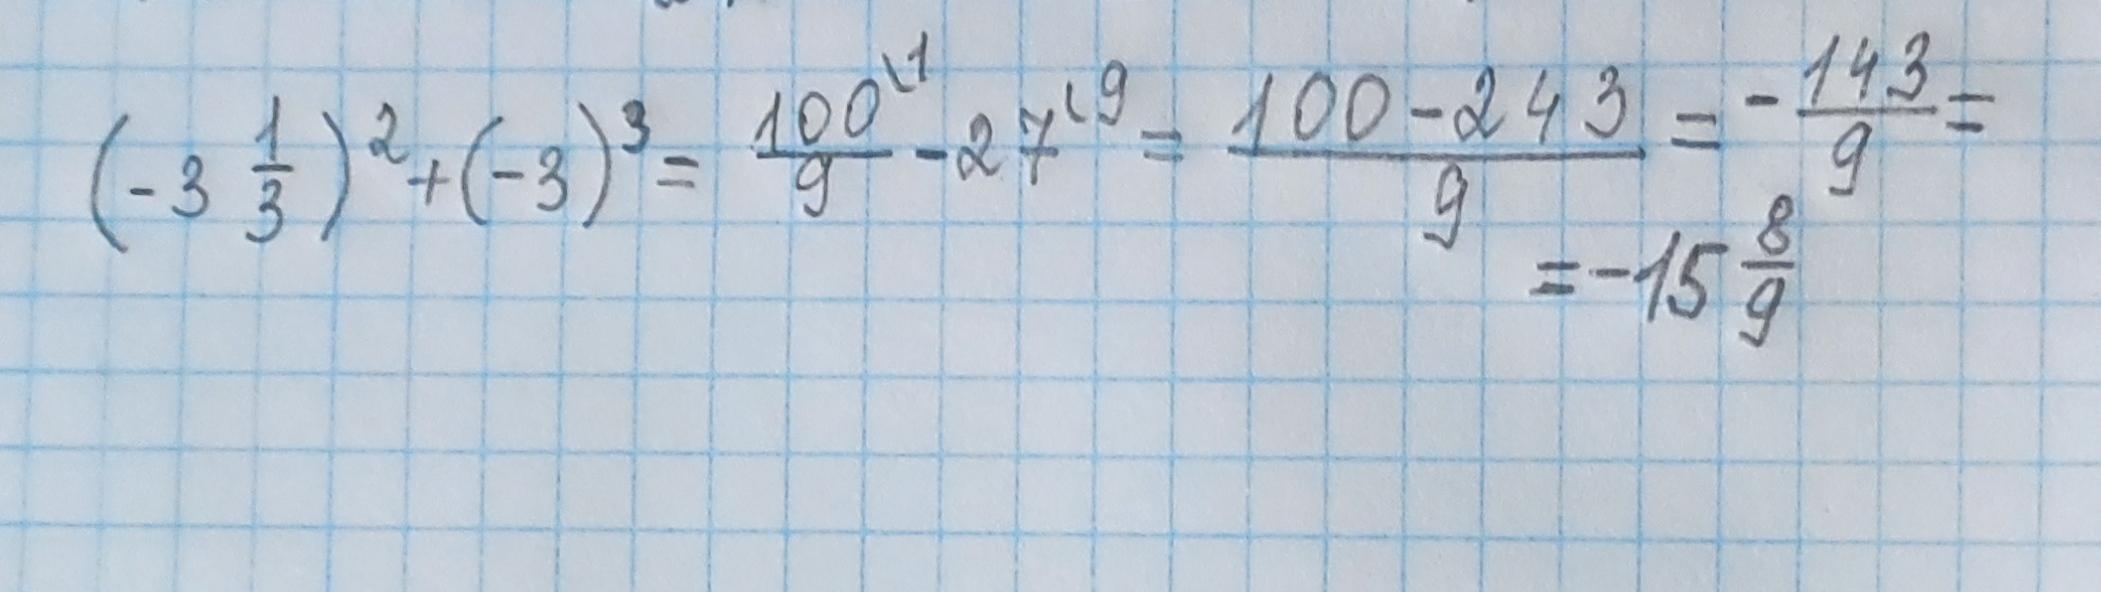 (-3 1/3)² + (-3)³ = 100\1/9 - 27\9 = (100 - 243)/9 = - 143/9 =
= -15 8/9